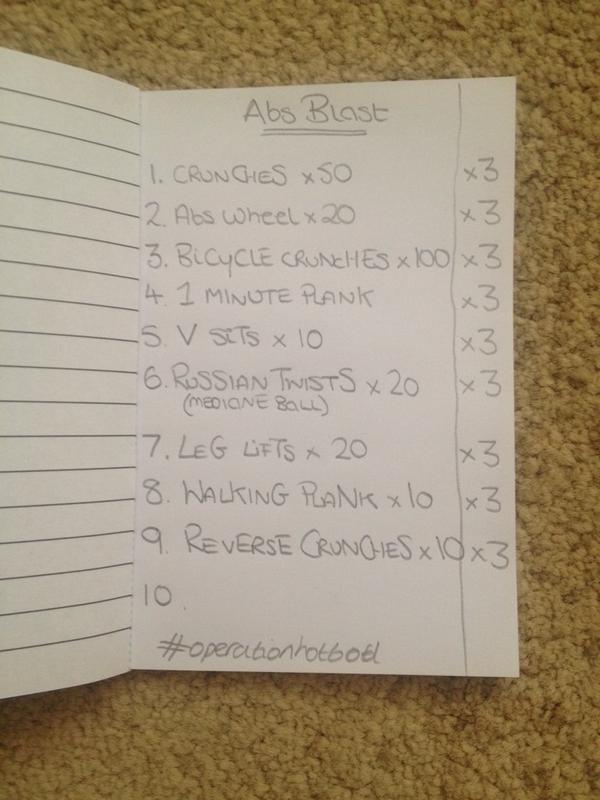 Abs Blast
1. CRUNCHES x50 x3
2. Abs wheel x 20 x3
3. BiCYCLE CRUNCHES x100 x3
4. 1 MINUTE PLANK x3
5. V SiTS x 10 x3
6. RUSSIAN TWISTS x 20 x3
(MEDICINE BALL)
7. LEG LiFTS x 20 x3
8. WALKING PLANK x10 x3
9. REVERSE CRUNCHES x10 x3
10.
#operationhotbod